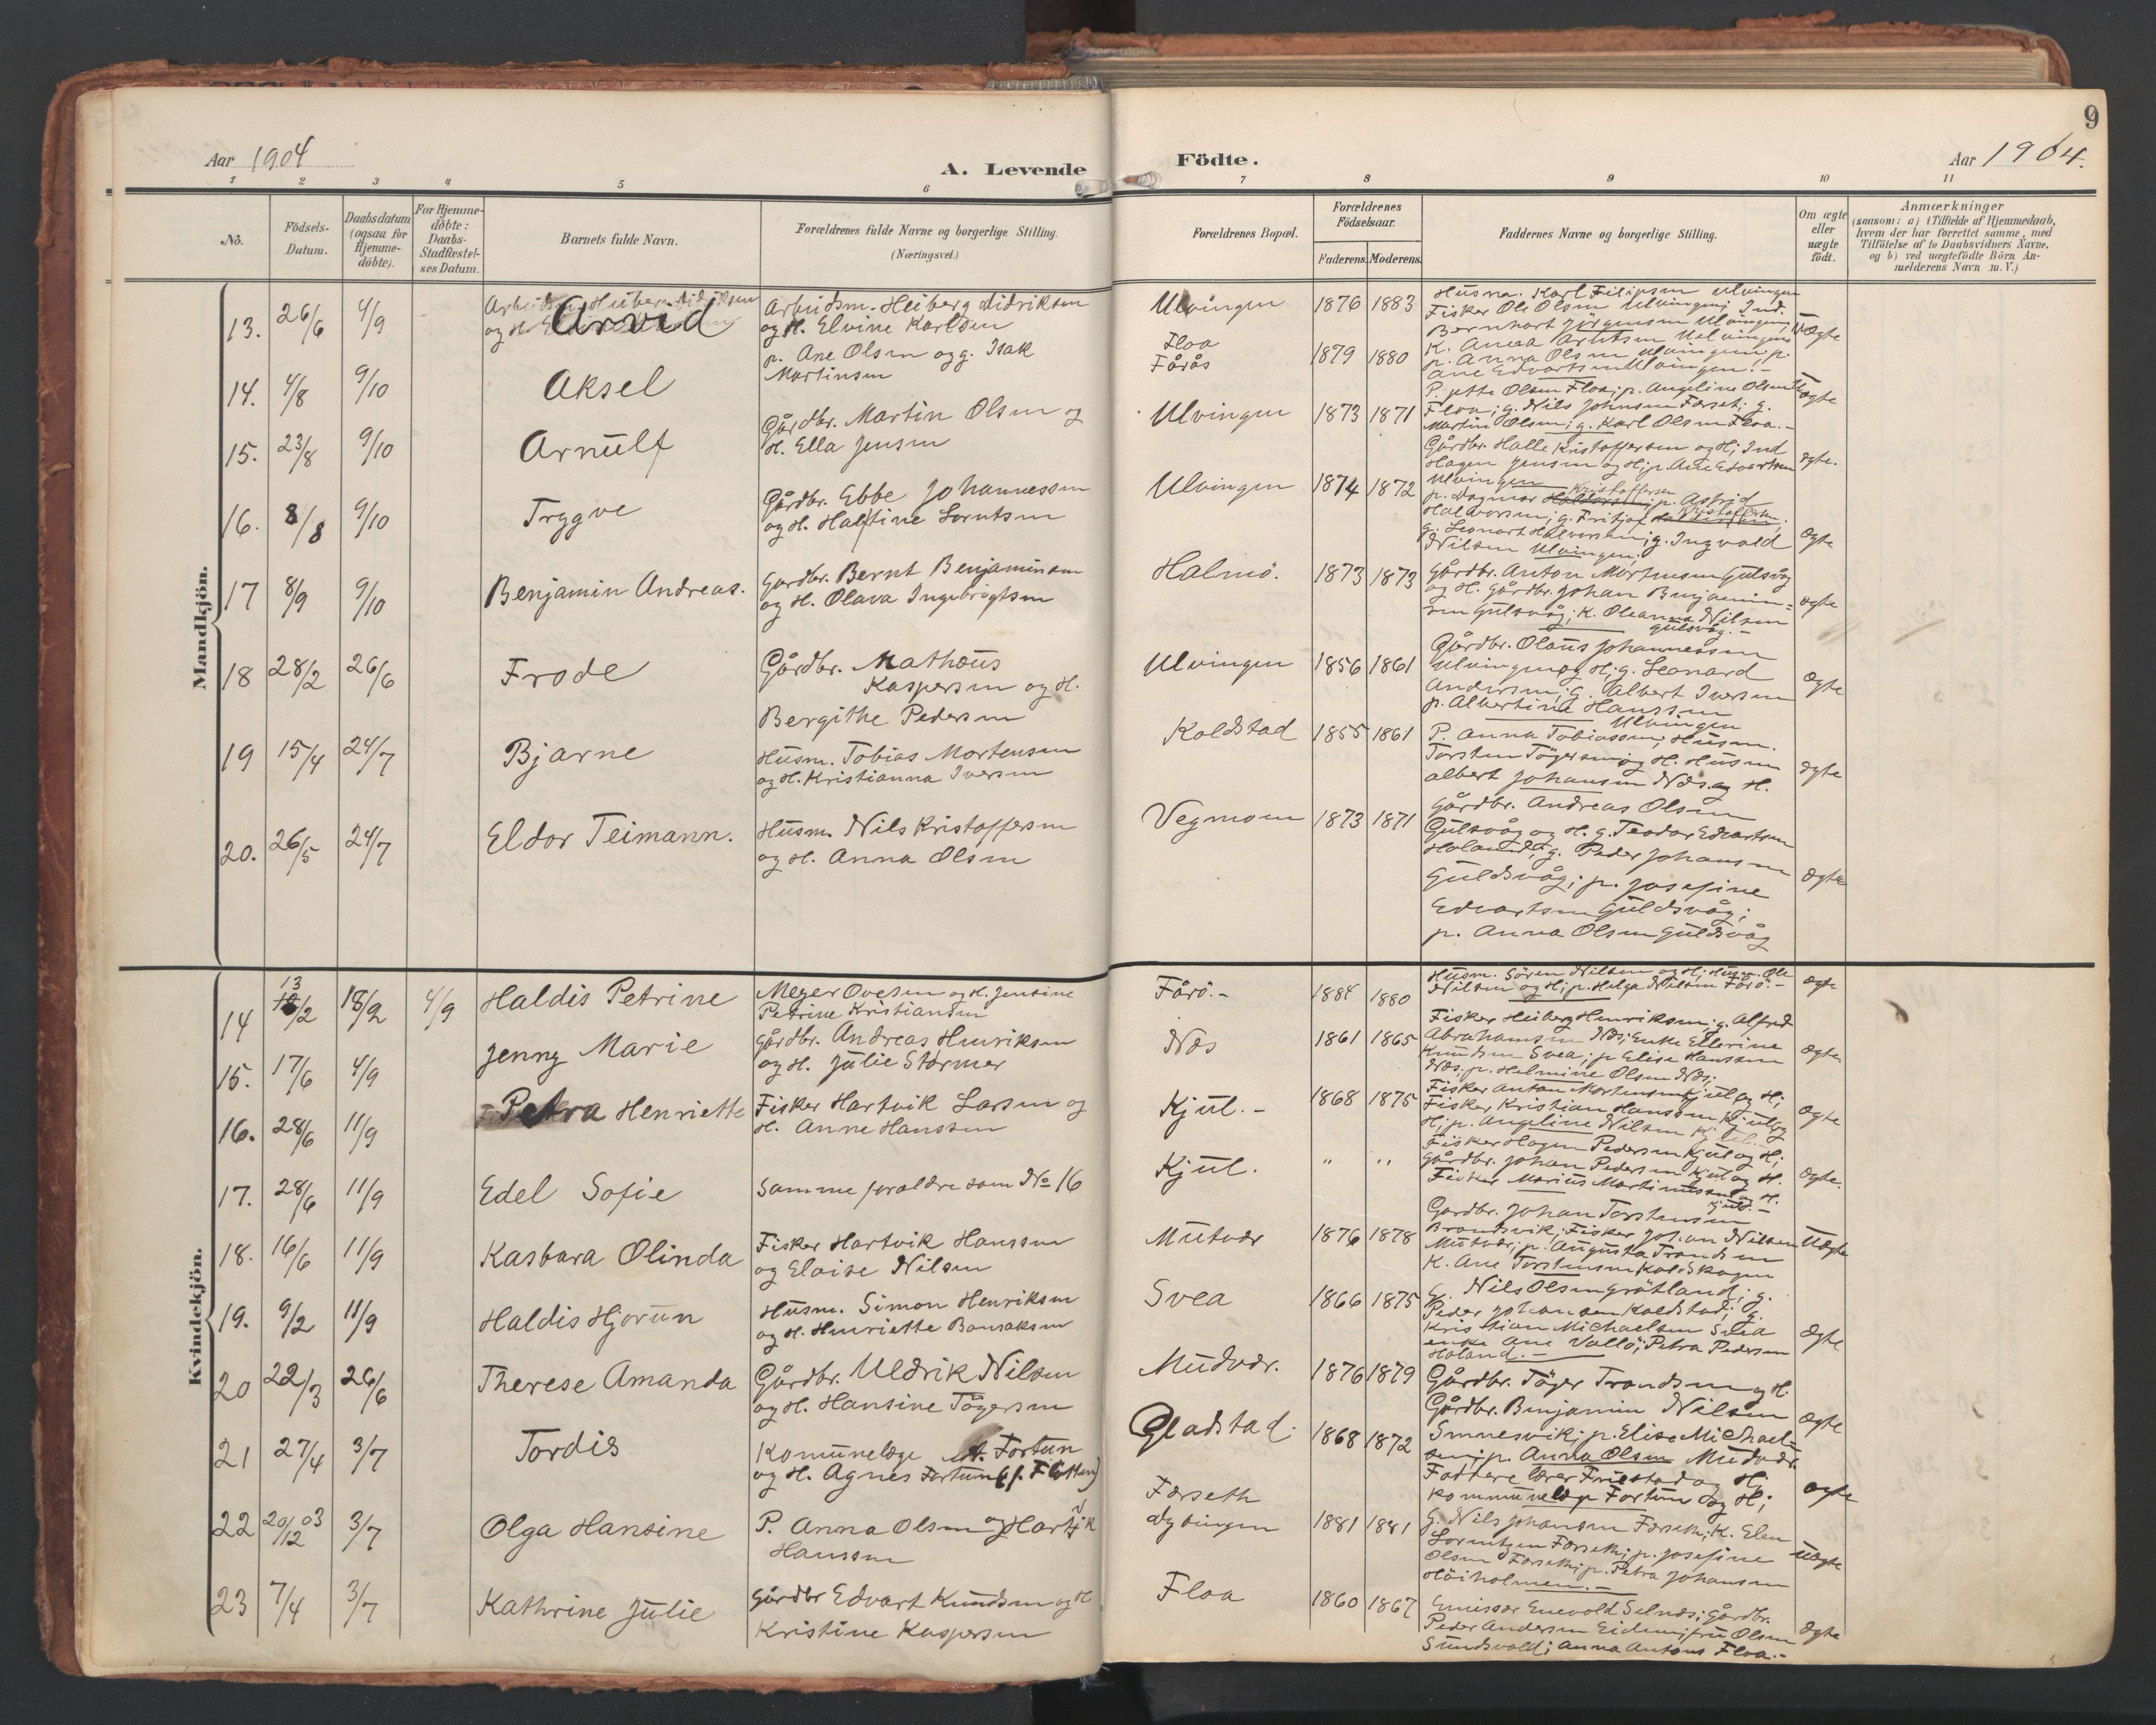 Aar 1904
A. Levende
1 2 3 4 5 6
Nô.
Födsels-Datum.
Daabsdatum (ogsaa for Hjemme-döbte).
For Hjemme-döbte: Daabs-Stadfæstel-ses Datum.
Barnets fulde Navn.
Forældrenes fulde Navne og borgerlige Stilling.
(Næringsvei.)
Mandkjön.
13. 26/6 4/9 Arvid
Arbeidsm. Heiberg Didriksen
og H. Elvine Karlsen
14. 4/8 9/10 Aksel
p. Ane Olsen og g. Isak
Martinsen
15. 23/8 9/10 Arnulf
Gårdbr. Martin Olsen og
H. Ella Jensen
16. 8/8 9/10 Trygve
Gårdbr. Ebbe Johannessen
og H. Halftine Lorntsen
17 8/9 9/10 Benjamin Andreas.
Gårdbr. Bernt Benjaminsen
og H. Olava Ingebrigtsen
18 28/2 26/6 Frode
Gårdbr. Mathæus
Kaspersen og H.
Bergithe Pedersen
19 15/4 24/7 Bjarne
Husm. Tobias Mortensen
og H. Kristianna Iversen
20. 26/5 24/7 Eldor Teimann.
Husm. Nils Kristoffersen
og H. Anna Olsen
Kvindekjön.
14 13/2 18/2 4/9 Haldis Petrine
Meyer Ovesen og H. Jensine
Petrine Kristiansen
15. 17/6 4/9 Jenny Marie
Gårdbr. Andreas Henriksen
og H. Julie Stormer
16. 28/6 11/9 Petra Henriette
Fisker Hartvik Larsen og
H. Anne Hanssen
17. 28/6 11/9 Edel Sofie
Samme foræld­re som No 16
18. 16/6 11/9 Kasbara Olinda
Fisker Hartvik Hanssen
og Eloise Nilsen
19. 9/2 11/9 Haldis Hjorun
Husm. Simon Henriksen
og H. Henriette Bonsaksen
20 22/3 26/6 Therese Amanda
Gårdbr. Uldrik Nilsen
og H. Hansine Tögersen
21 27/4 3/7 Tordis
Komunelæge A. Fortun
og H. Agnes Fortun
22 20/12 03 3/7 Olga Hansine
P. Anna Olsen og Hartvik
Hanssen
23 7/4 3/7 Kathrine Julie
Gårdbr Edvart Knudsen og H.
Kristine Kaspersen
9
Födte.
Aar 1904.
7 8 9 10 11
Forældrenes Bopæl.
Forældrenes Födselsaar.
Faderens. Moderens.
Faddernes Navne og borgerlige Stilling.
Om ægte eller uægte födt.
Anmærkninger
(saasom: a) i Tilfælde af Hjemmedaab,
hvem der har forrettet samme, med
Tilföielse af to Daabsvidners Navne,
og b) ved uægtefödte Börn An-
melderens Navn m. V.)
Ulvingen 1876 1883
Husm. Karl Filipsen Ulvingen
Fisker Ole Olsen Ulvingen; Ind.
Bernhart Jörgensen Ulvingen;
p. Anna Olsen Ulvingen; p.
Ane Edvartsen Ulvingen.-
Ægte
Floa
Fårås 1879 1880
P. Jette Olsen Floa; p. Angeline Olsen
Floa; g. Nils Johnsen Forset; g.
Martin Olsen; g. Karl Olsen Floa.-
Uægte
Ulvingen 1873 1871
Gårdbr. Halle Kristoffersen og H; Ind
Hagen Jensen og H; p. Ane Edvartsen
Ulvingen
ægte.
Ulvingen 1874 1872
p. Dagmar Kristoffersen; p. Astrid
Halvorsen; g. Fritjof Kristoffersen,
g. Leonart Halvorsen; g. Ingvald
Nilsen Ulvingen.
Ægte
Halmö. 1873 1873
Gårdbr. Anton Mortensen Gulsvåg
og H. Gårdbr. Johan Benjamin-
sen Gulsvåg; K. Oleanna Nilsen
Gulsvåg.-
ægte
Ulvingen 1856 1861
Gårdbr. Olaus Johannessen
Ulvingen og H; g. Leonard
Andersen; g. Albert Iversen
p. Albertine Hanssen
Ulvingen
Ægte
Koldstad 1855 1861
P. Anna Tobiassen; Husm.
Torsten Tögersen og H. Husm
Albert Johansen Næs og H.
ægte
Vegmoen 1873 1871
Gårdbr. Andreas Olsen
Gulsvåg og H. g. Teodor Edvartsen
Holand; g. Peder Johansen
Guldsvåg; p. Josefine
Edvartsen Guldsvåg;
p. Anna Olsen Guldsvåg
Ægte
Fårö.- 1884 1880
Husm. Sören Nilsen og H; Husm. Ole
Nilsen og H; p. Helga Nilsen Fårö.-
ægte
Næs 1861 1865
Fisker Heiberg Henriksen; g. Alfred
Abrahamsen Næs; Enke Ellerine
Knudsen Svea; p Elise Hanssen
Næs; p. Helmine Olsen Næs;
Ægte.
Kjul.- 1868 1875
Fisker Anton Mortensen Kjul og H;
Fisker Kristian Hanssen Kjul og
H; p. Angeline Nilsen Kjul.-
Ægte
Kjul. " "
Fisker Hagen Pedersen Kjul og H;
Gårdbr. Johan Pedersen Kjul og H.
Fisker Marius Martinussen og H.
Kjul.-
Ægte.
Mutvær 1876 1878
Gårdbr. Johan Torstensen
Brandsvik; Fisker Johan Nilsen
Mutvær; p. Augusta Trondsen
K. Ane Torstensen Koldskogen
Uægte
Svea 1866 1875
G. Nils Olsen Grötland; g.
Peder Johansen Koldstad; g.
Kristian Michaelsen Svea
enke Ane Vallö; Petra Pedersen
Holand.-
Ægte
Mudvær. 1876 1879
Gårdbr. Töger Trondsen og H.
Gårdbr. Benjamin Nilsen
Smnesvik; p. Elise Michael-
sen; p. Anna Olsen Mudvær.
Ægte
Gladstad. 1868 1872
Faddere lærer Friestad og H;
kommunelæge Fortun og H;
ægte
Forseth
Dybingen 1881 1881
G. Nils Johansen Forseth; K. Elen
Lorentzen Forseth; p. Josefine
Olsen Forseth; p. Petra Johansen
Höiholmen.-
Uægte
Floa 1860 1867
Emissær Enevold Selnæs; Gårdbr.
Peder Andersen Eidem; fru Olsen
Sundsvold; Anna Antons Floa.-
Ægte